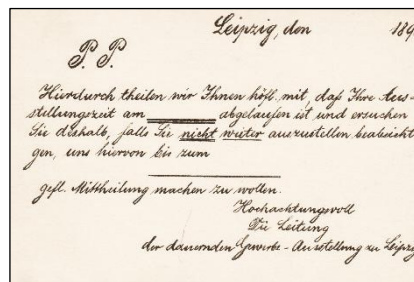 Leipzig, den 189
P. P.
Hierdurch theilen wir Ihnen höfl. mit, daß Ihre Aus-
stellungszeit am abgelaufen ist und ersuchen
Sie deshalb, falls Sie nicht weiter auszustellen beabsicht
gen, uns hiervon bis zum
gefl. Mittheilung machen zu wollen.
Hochachtungsvoll
Die Leitung
der dauernden Gewerbe-Ausstellung zu Leipzig